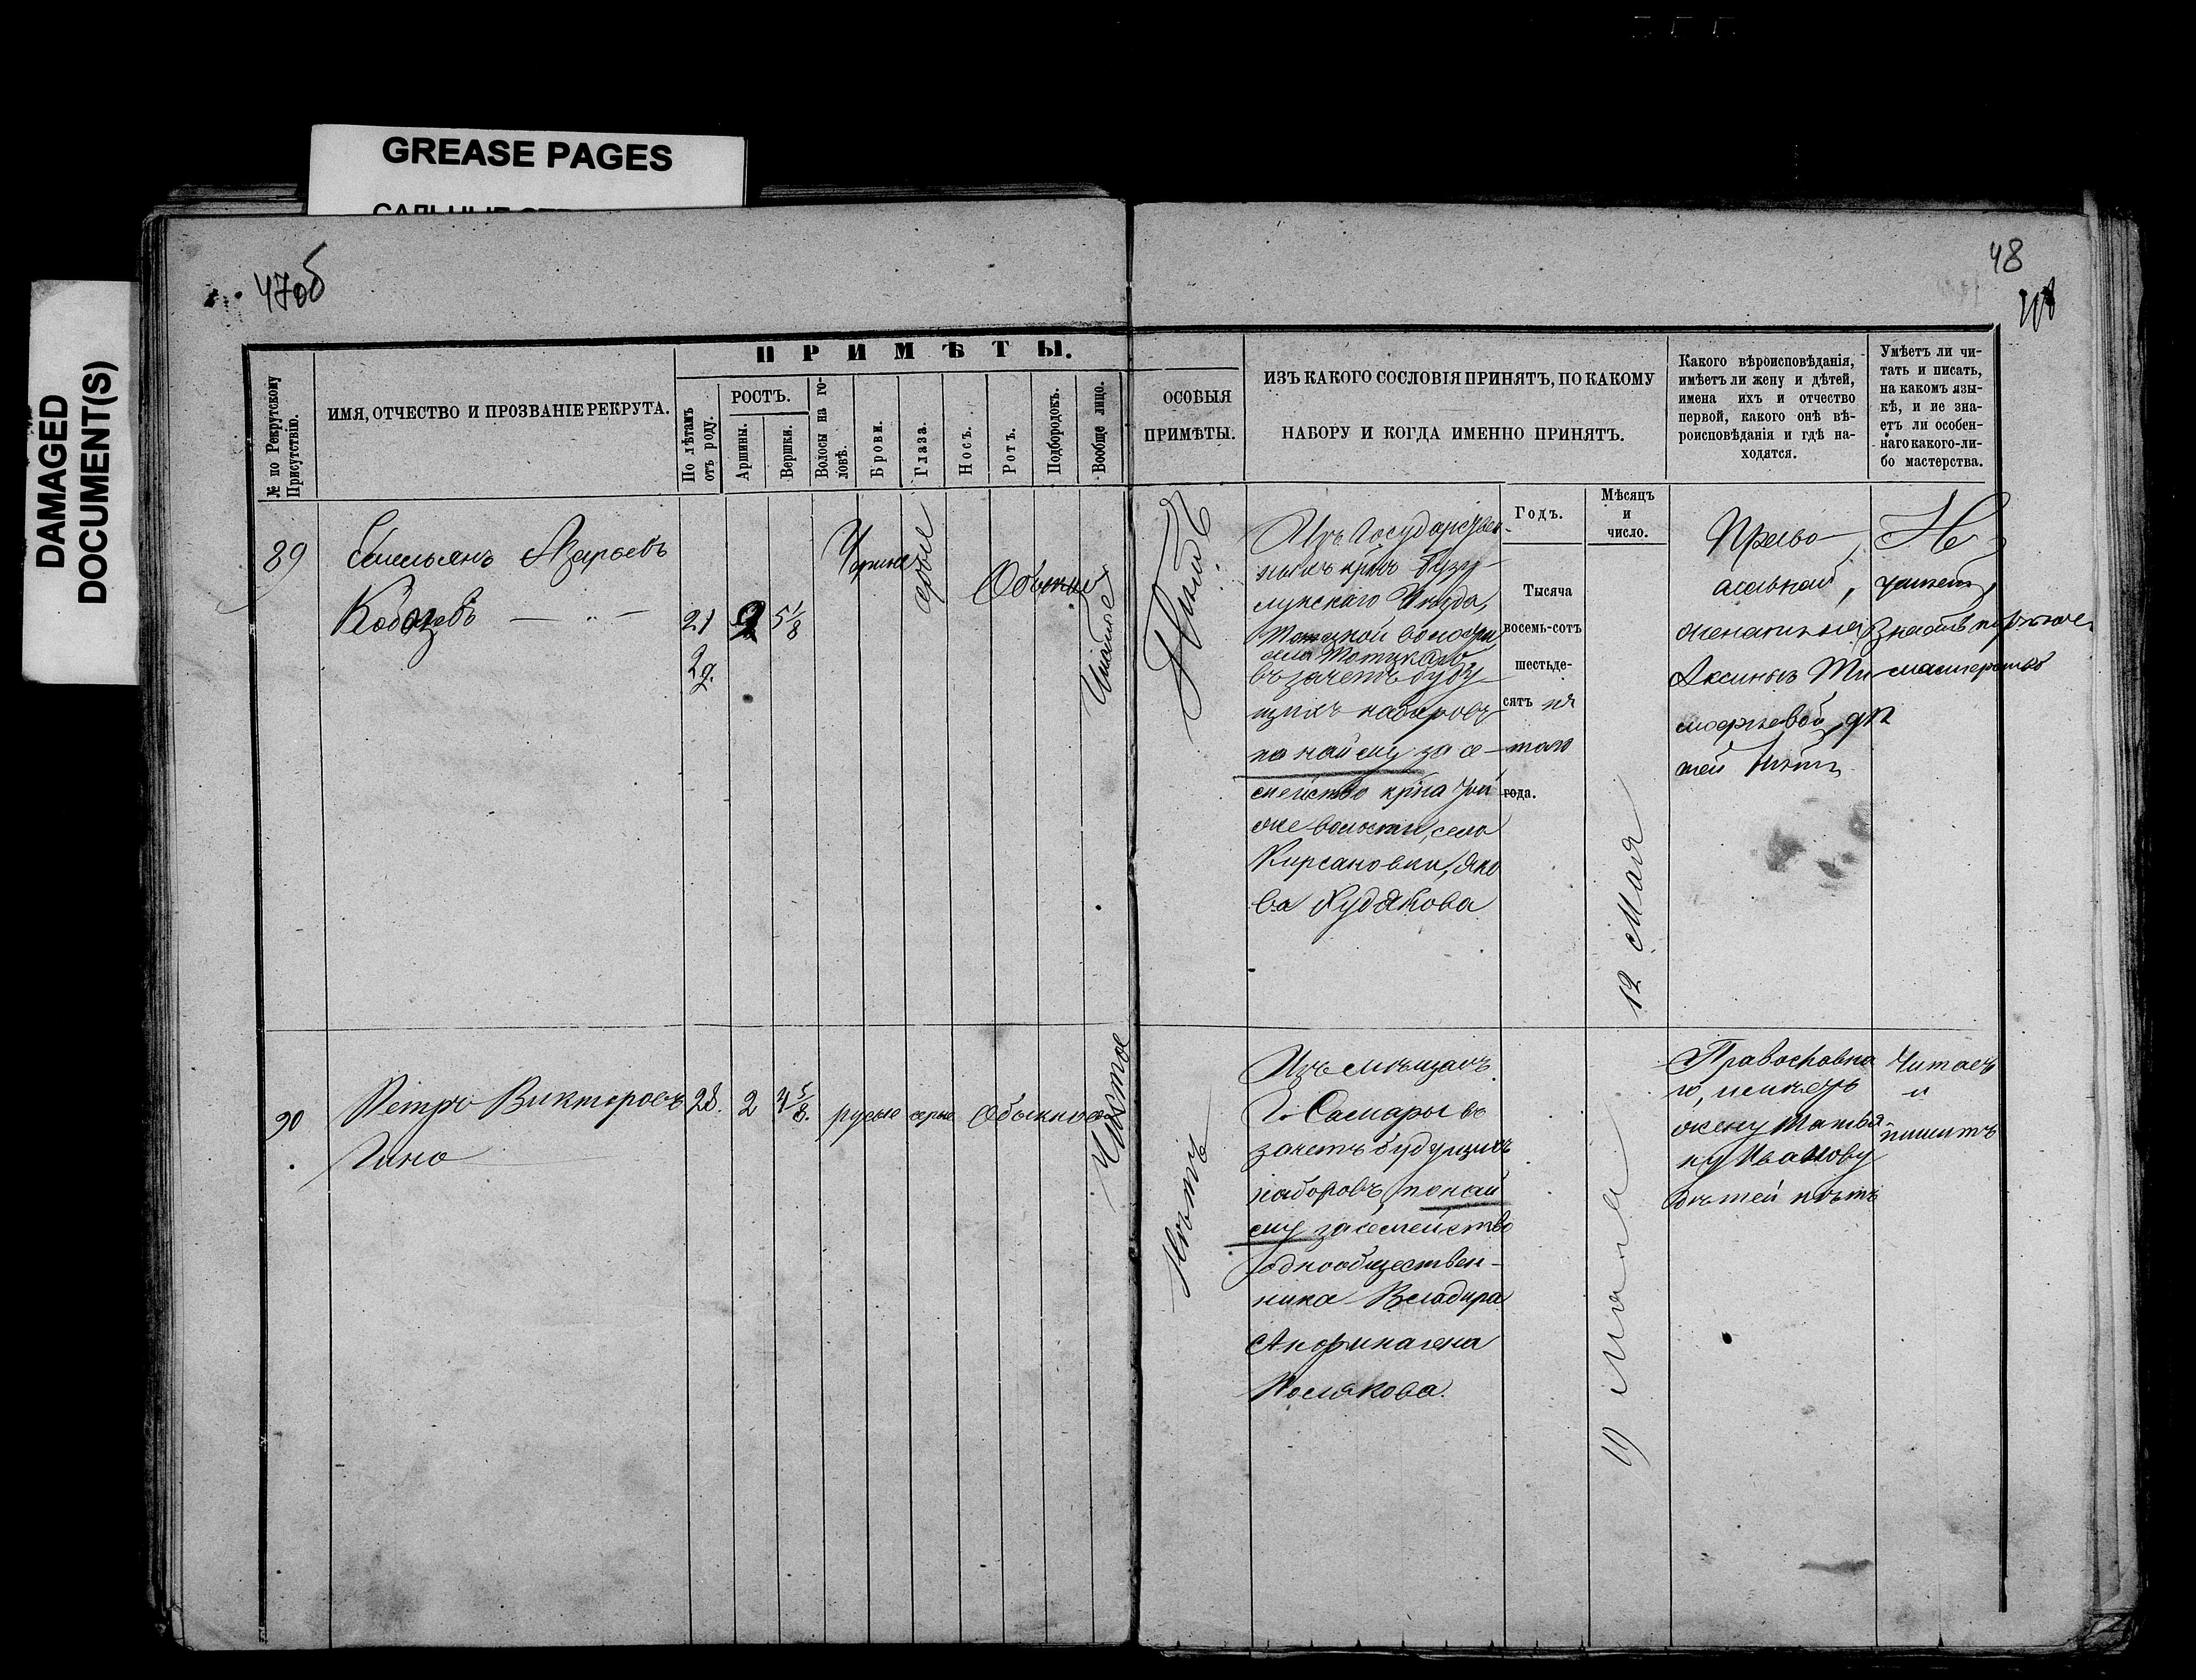 GREASE PAGES
DAMAGED
DOCUMENT(S)
47об
48
ПРИМѢТЫ.
№ по Рекрутскому
Присутствію.
ИМЯ, ОТЧЕСТВО И ПРОЗВАНІЕ РЕКРУТА.
По лѣтамъ
отъ роду.
РОСТЪ.
Аршины.
Вершки.
Волосы на го-
ловѣ.
Брови.
Глаза.
Носъ.
Ротъ.
Подбородокъ.
Вообще лицо.
ОСОБЫЯ
ПРИМѢТЫ.
ИЗЪ КАКОГО СОСЛОВІЯ ПРИНЯТЪ, ПО КАКОМУ
НАБОРУ И КОГДА ИМЕННО ПРИНЯТЪ.
Годъ.
Мѣсяцъ
и
число.
Какого вѣроисповѣданія,
имѣетъ ли жену и дѣтей,
имена ихъ и отчество
первой, какого онѣ вѣ-
роисповѣданія и гдѣ на-
ходятся.
Умѣетъ ли чи-
тать и писать,
на какомъ язы-
кѣ, и не зна-
етъ ли особен-
наго какого-ли-
бо мастерства.
89
Емельянъ Азарьевъ
21
2
5 1/8
Чистое
Нѣтъ
Изъ Государствен-
ныхъ крнъ Бузу-
лукскаго Уѣзда,
Тоцкой волости,
села Тоцкаго
въ зачетъ буду-
щихъ наборовъ
по найму за се-
мейство крна той
же волости, села
Кирсановки, Яко
ва Худякова
Тысяча
восемь-сотъ
шестьде-
сятъ пя
таго
года.
12 Мая
Право
славной,
Аксинья Ти
мофеевой, дѣ
тей нѣтъ
Не
мастерство
90
Петръ Викторовъ
28.
2
4 5/8.
русые
серые
Обыкновен
Чистое
Нѣтъ
Изъ мѣщанъ
г. Самары въ
зачетъ будущихъ
наборовъ, по най
му за семейство
однообществен-
ника
Полякова.
19 мая
Православна
го, имѣетъ
жену
ну Иванову
дѣтей нѣтъ
Читаетъ
и
пишитъ